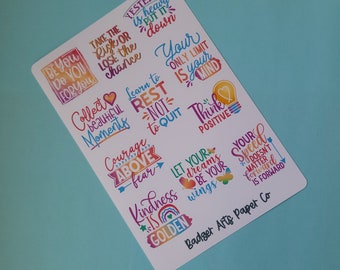 YESTERDAY
is heavy
PUT IT
down
TAKE THE
Risk OR
LOSE the
chance
BE YOU
DO YOU
FOR YOU
Your
ONLY LIMIT
IS your
MIND
Collect
beautiful
Moments
Learn to
REST
NOT
to QUIT
Think
POSITIVE
Courage
ABOVE
fear
LET YOUR
dreams
BE YOUR
wings
YOUR
Speed
DOESN'T
MATTER
IS FORWARD
Kindness
IS
GOLDEN
Badger Arts Paper Co